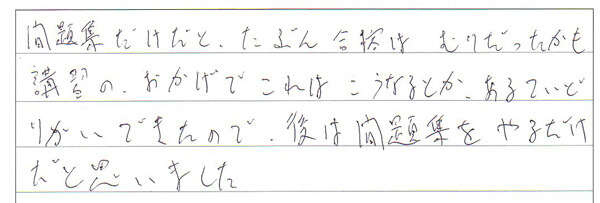 問題集だけだと、たぶん合格は むりだったかも
講習の、おかげで これは こうなるとか、あるていど
りかいできたので、後は問題集を やるだけ
だと思いました